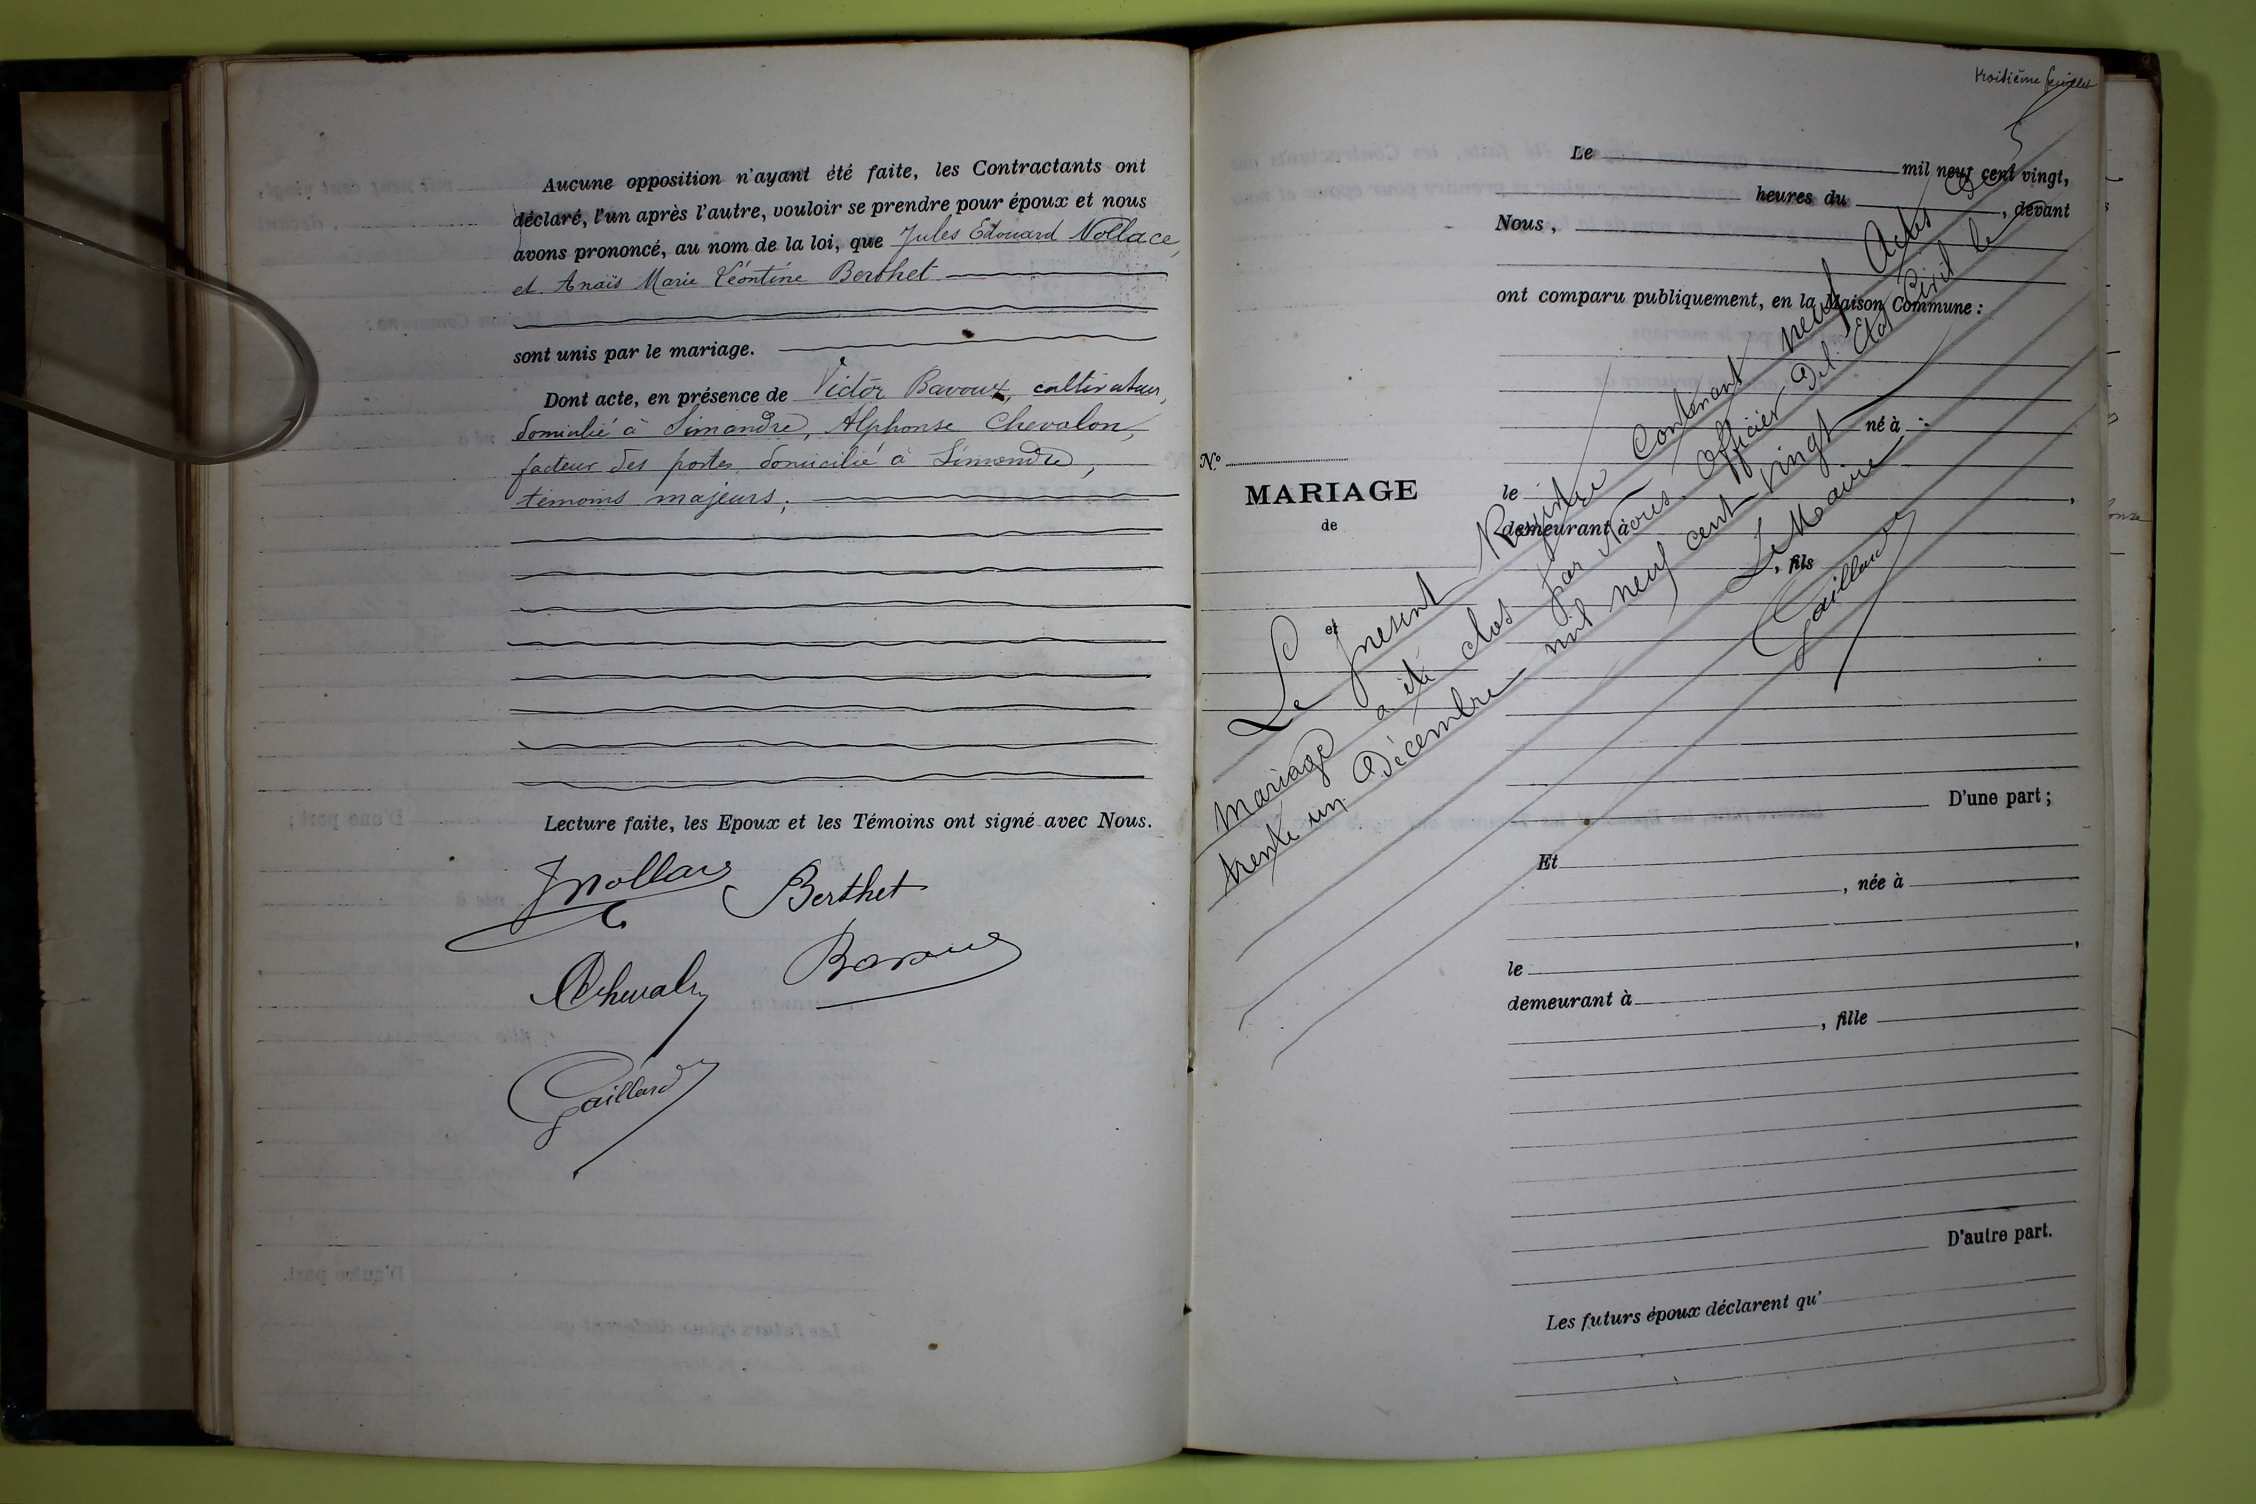 Aucune opposition n'ayant été faite, les Contractants ont
déclaré, l'un après l'autre, vouloir se prendre pour époux et nous
avons prononcé, au nom de la loi, que Jules Edouard Nollace,
et Anaïs Marie Léontine Berthet
sont unis par le mariage.
Dont acte, en présence de Victor Bavoux, cultivateur,
domicilié à Simandre, Alphonse Chevalon,
facteur des postes, domicilié à Simandre,
témoins majeurs;
Lecture faite, les Epoux et les Témoins ont signé avec Nous.
Berthet
Bavoux
Gaillard
troisième feuillet
Le mil neuf cent vingt,
heures du , devant
Nous,
ont comparu publiquement, en la Maison Commune :
né à
N°
MARIAGE
de
le ,
demeurant à
, fils
et
Le présent Registre Contenant neuf Actes De
mariage a été clos par Nous Officier Del' Etat Civil le
trente un Décembre mil neuf cent vingt
Le Maire
Gaillard
D'une part ;
Et
, née à
le ,
demeurant à
, fille
D'autre part.
Les futurs époux déclarent qu'